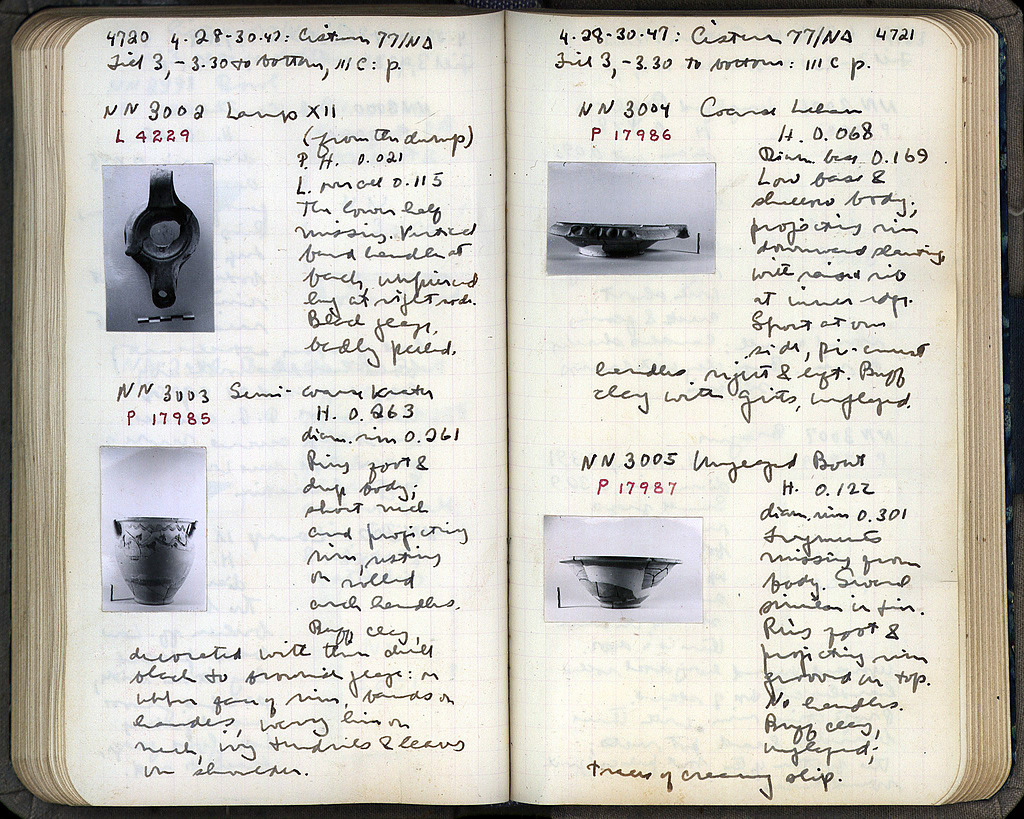 4720 4-28-30-47: Cistern 77/ΝΔ
Fill 3, -3.30 to bottom, III C: p.
NN 3002 Lamp XII
L 4229
(from the dump)
P. H. 0.021
L. 0.115
The lower half
missing. Vertical
band handle at
back, unpierced
lug at right side.
Black glaze,
badly peeled.
NN 3003 Semi-coarse Krater
P 17985
H. 0.263
diam. rim 0.261
Ring foot &
deep body;
short neck
and projecting
rim, resting
on rolled
arch handles.
Buff clay,
decorated with thin dull
black to brownish glaze: on
upper face of rim, bands on
handles, wavy line on
neck, ivy tendrils & leaves
on shoulder.
4-28-30-47: Cistern 77/ΝΔ 4721
Fill 3, -3.30 to bottom: III C p.
NN 3004 Coarse Lekane
P 17986
H. 0.068
Diam. base 0.169
Low base &
shallow body;
projecting rim
downward slanting
with raised rib
at inner edge.
Spout at one
side, pie-crust
handles, right & left. Buff
clay with grits, unglazed.
NN 3005 Unglazed Bowl
P 17987
H. 0.122
diam. rim 0.301
Fragments
missing from
body. Several
similar in fill.
Ring foot &
projecting rim
grooved on top.
No handles.
Buff clay,
unglazed;
traces of creamy slip.